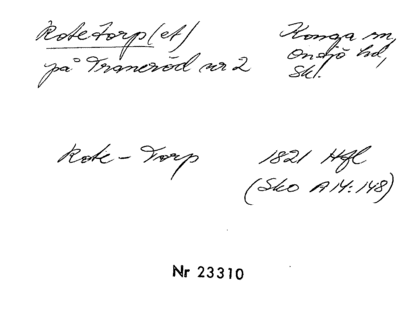 Rotetorp (et) Konga sn,
på Traneröd nr 2 Onsjö hd,
Sk.
Rote - Torp 1821 Hfl
(Sko A 14:148)
Nr 23310